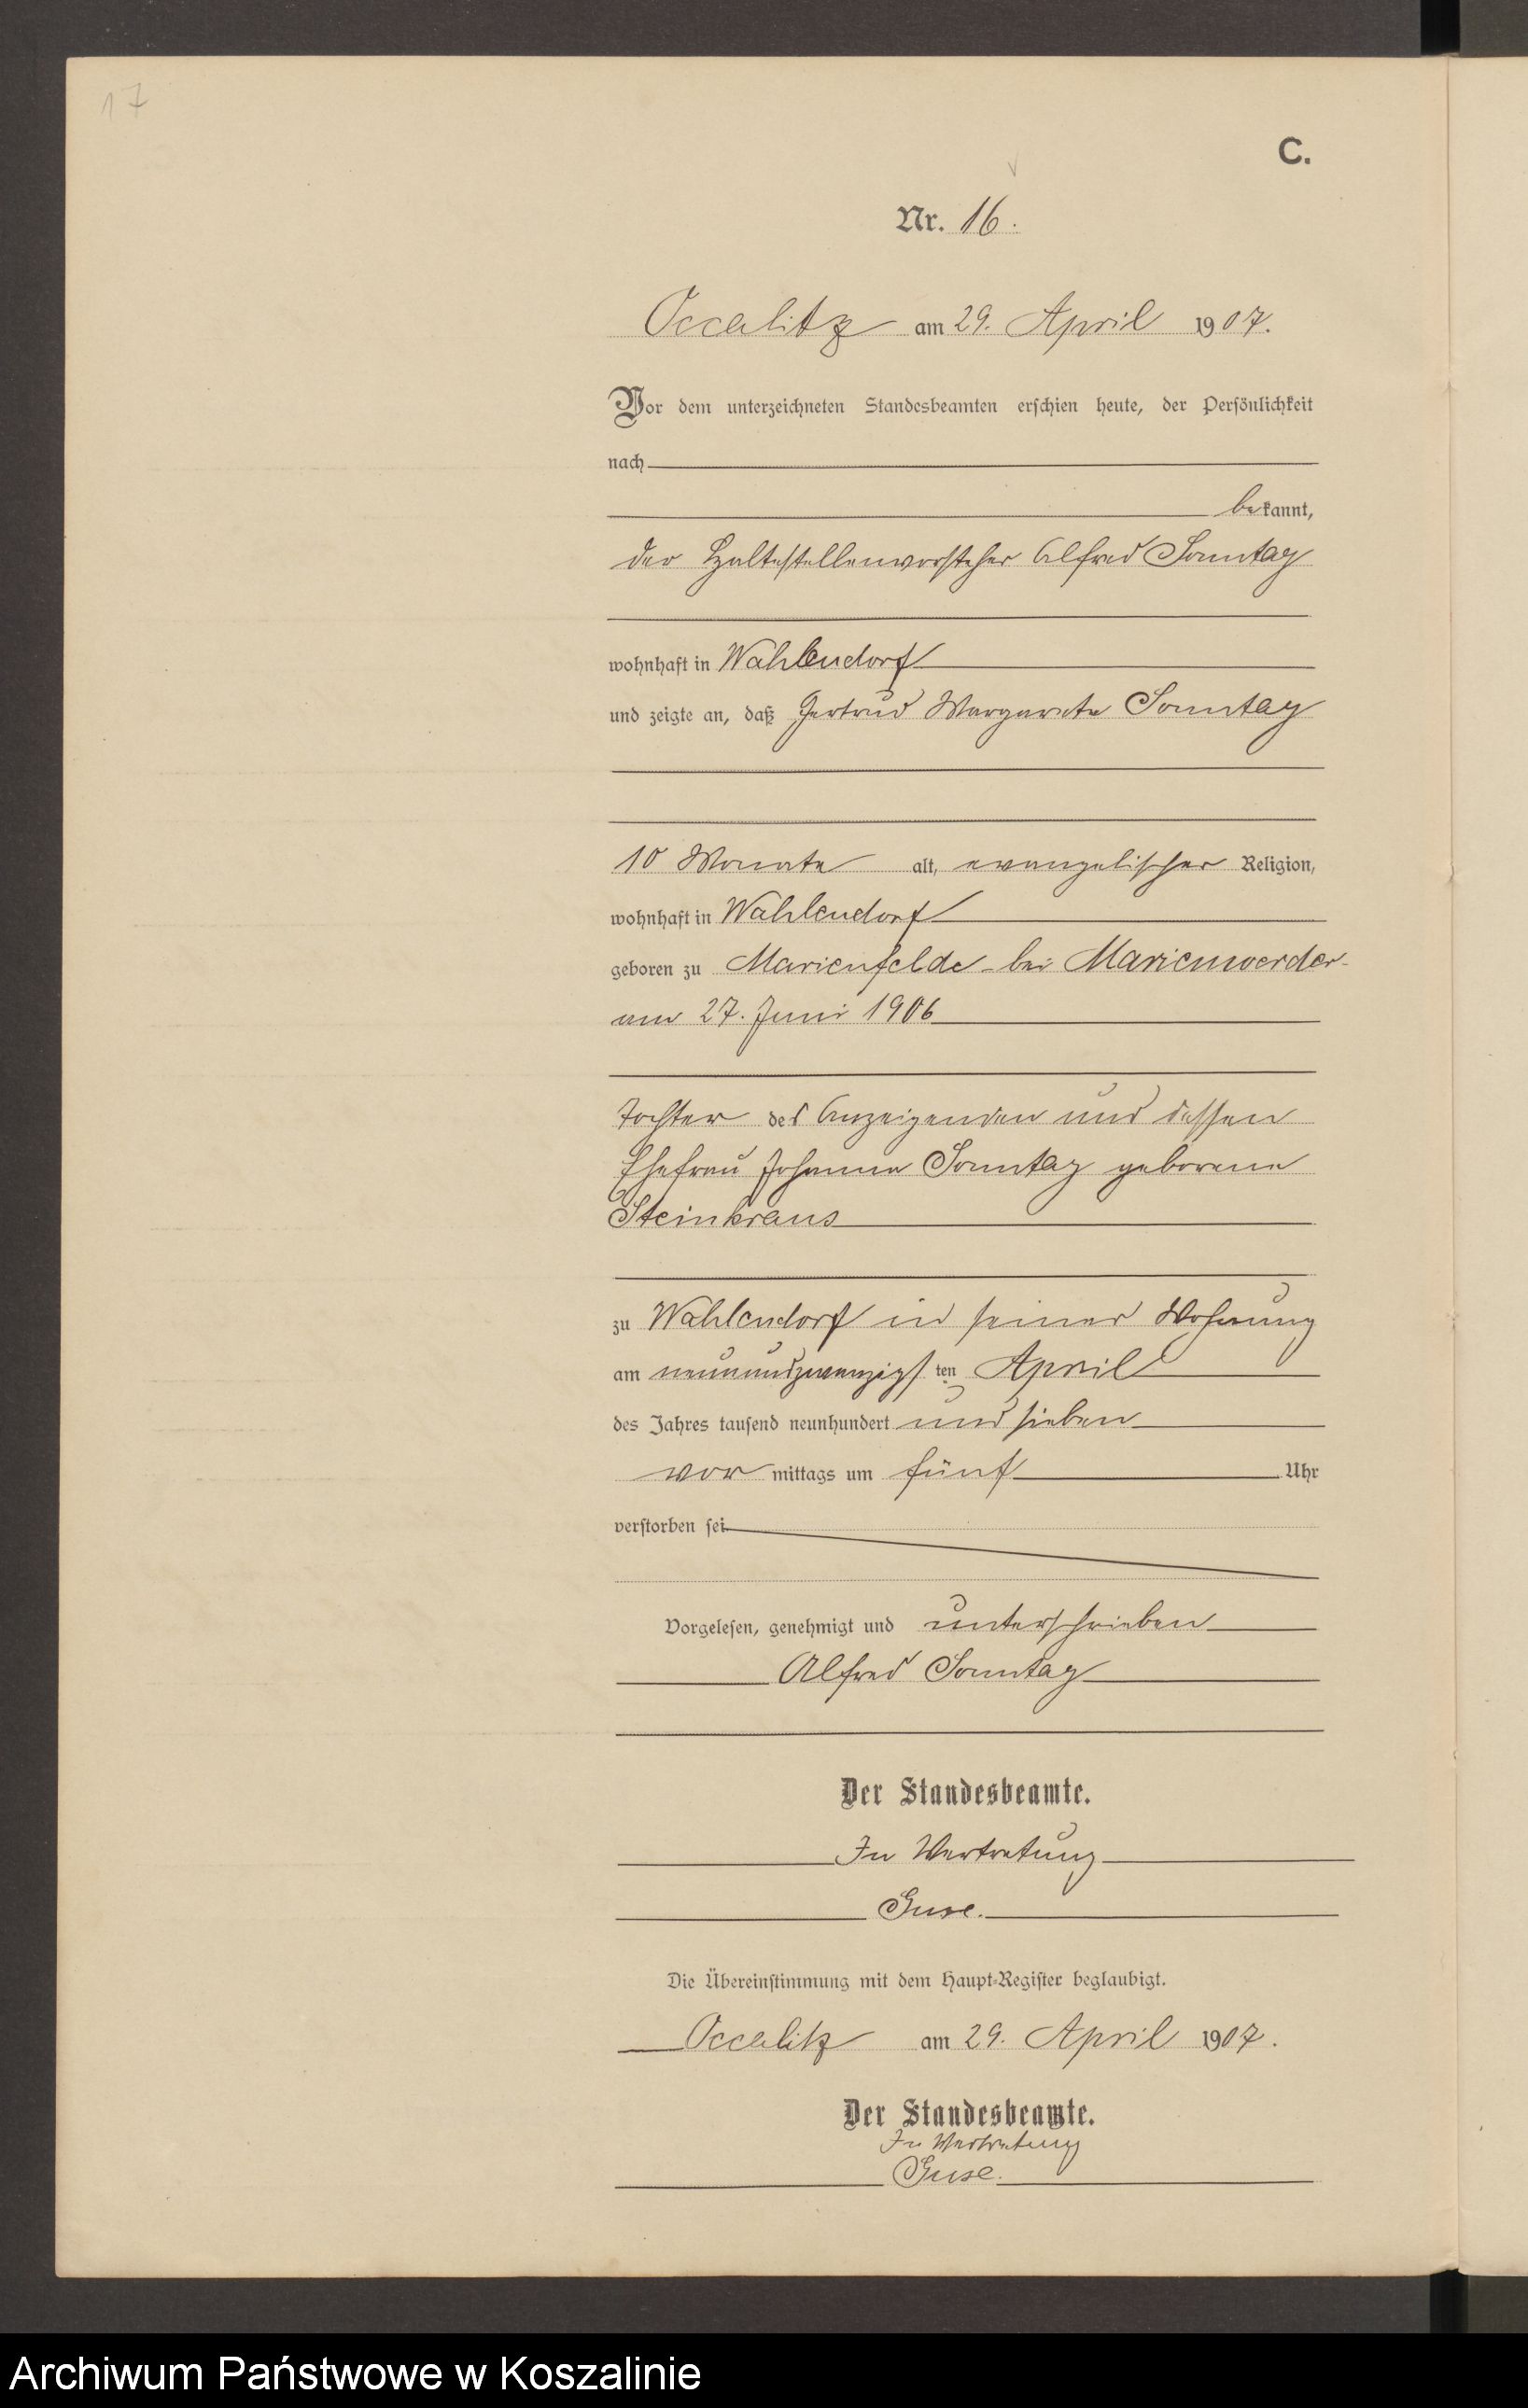 17
C.
Nr. 16.
Occalitz am 29. April 1907.
Vor dem unterzeichneten Standesbeamten erschien heute, der Persönlichkeit
nach
bekannt,
der Haltestellenvorsteher Alfred Sonntag
wohnhaft in Wahlendorf
und zeigte an, daß Gertrud Margarete Sonntag
10 Monate alt, evangelischer Religion,
wohnhaft in Wahlendorf
geboren zu Marienfelde bei Marienwerder
am 27. Juni 1906
Tochter des Anzeigenden und dessen
Ehefrau Johanna Sonntag geborene
Steinkraus
zu Wahlendorf in seiner Wohnung
am neunundzwanzigsten April
des Jahres tausend neunhundert und sieben
vor mittags um fünf Uhr
verstorben sei
Vorgelesen, genehmigt und unterschrieben
Alfred Sonntag
Der Standesbeamte.
In Vertretung
Guse.
Die Übereinstimmung mit dem Haupt-Register beglaubigt.
Occalitz am 29. April 1907.
Der Standesbeamte.
In Vertretung
Guse.
Archiwum Państwowe w Koszalinie